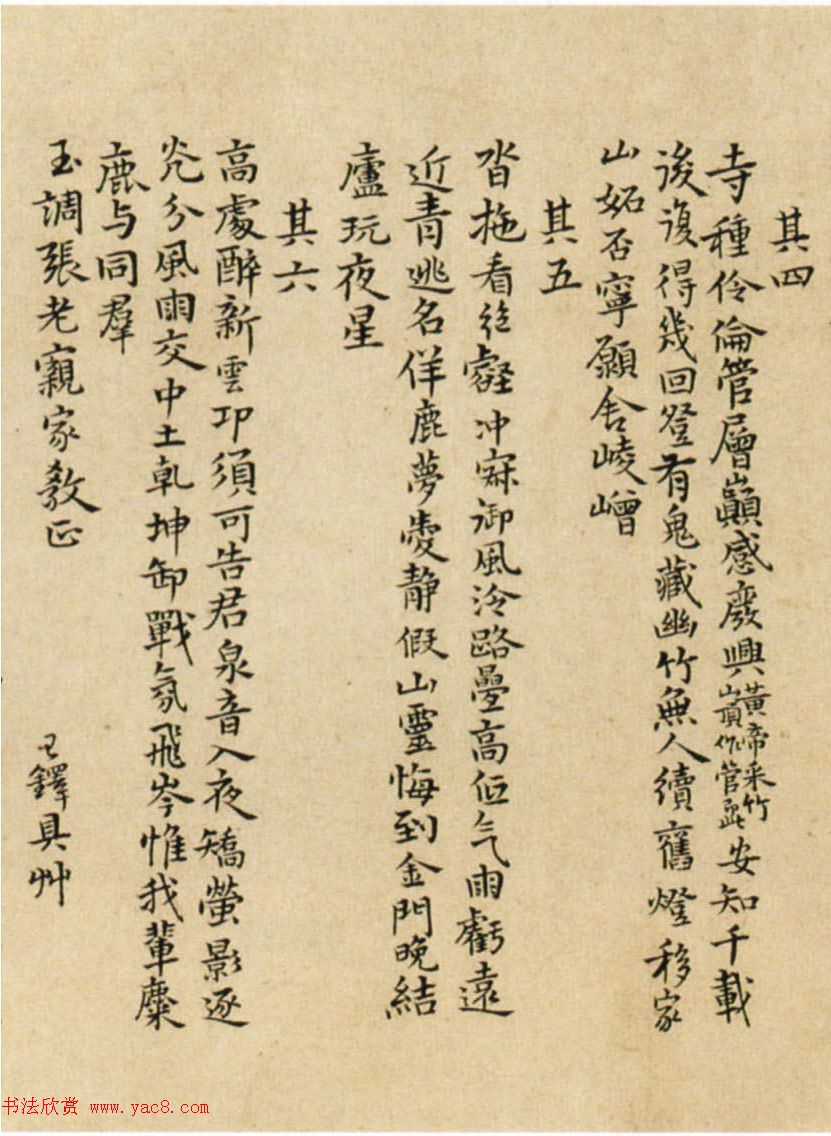 其四
寺種伶倫管層巔感廢興黃帝采竹山頂作管處安知千載
後復得幾回登有鬼藏幽竹無人續舊燈移家
山妬否寧願舍崚嶒
其五
沓拖看往壑沖寂御風泠路疊高低气雨虧遠
近青逃名佯鹿夢愛靜假山靈悔到金門晚結
廬玩夜星
其六
高處醉新雲邛須可告君泉音入夜矯螢影逐
光分風雨交中土乾坤卸戰氛飛岑惟我輩麋
鹿与同羣
玉調張老親家教正
王鐸具艸
书法欣赏 www.yac8.com